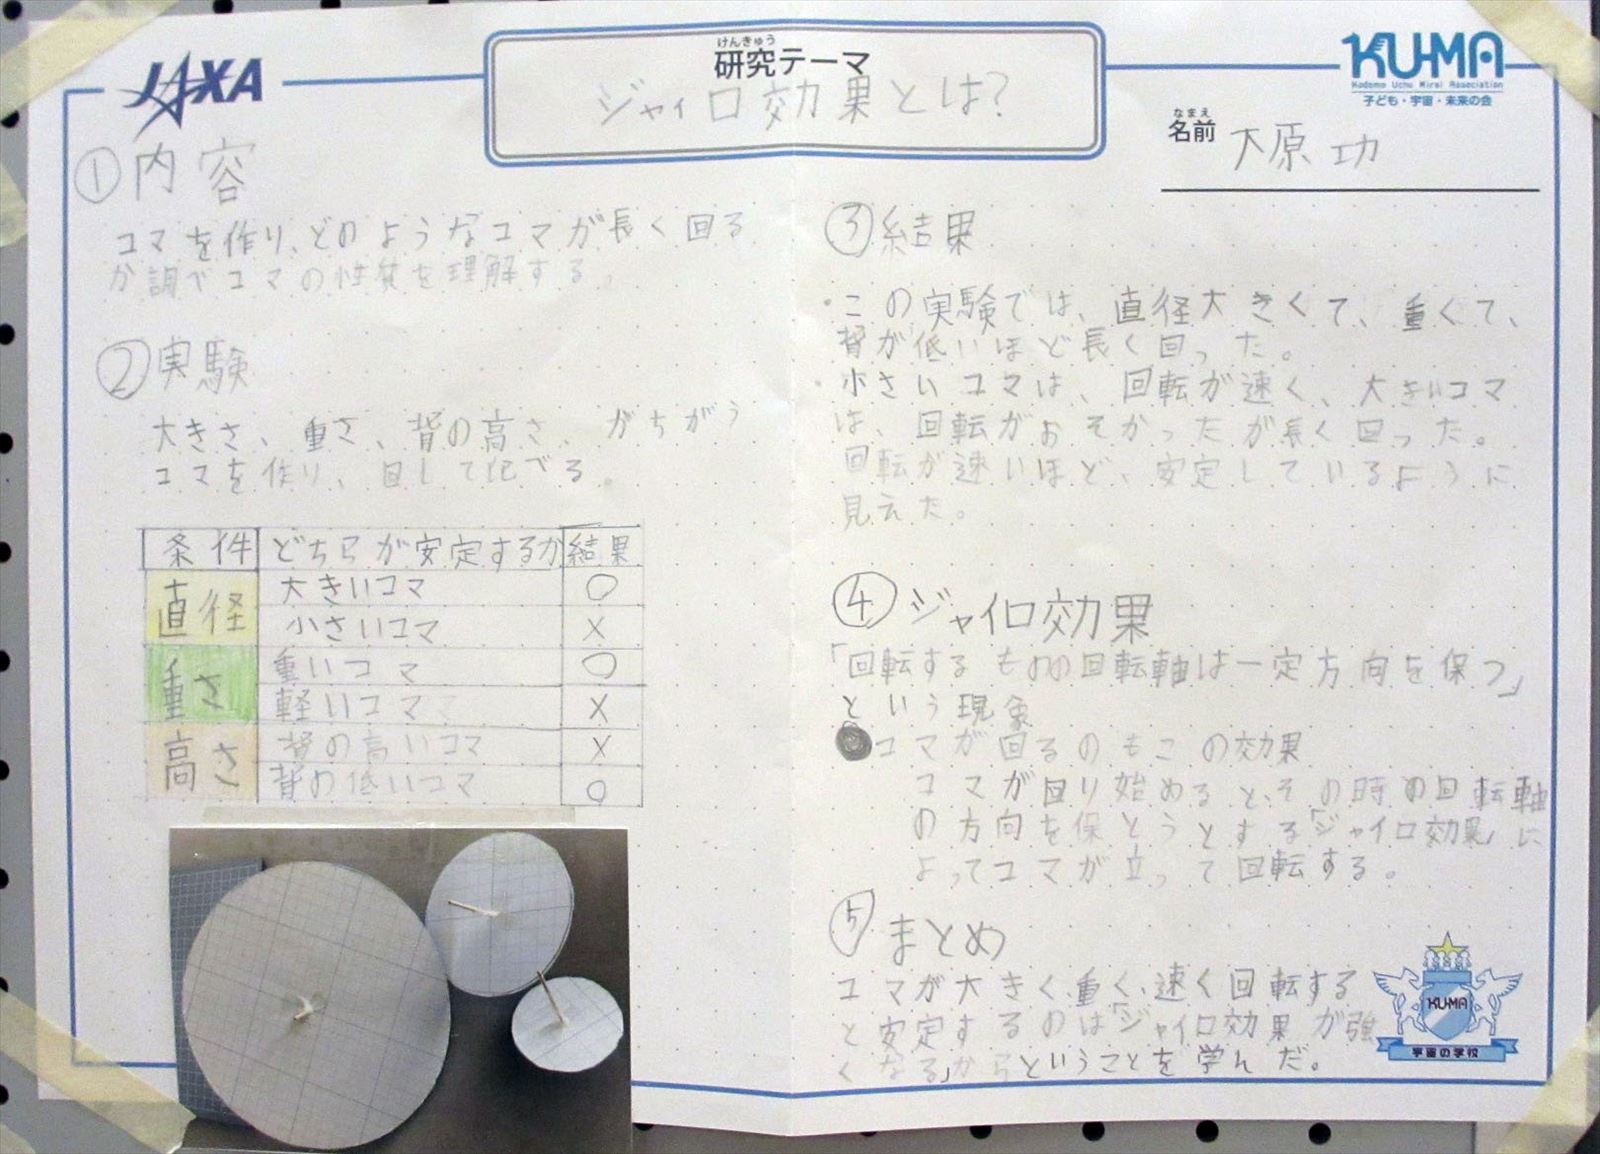 JAXA
けんきゅう
研究テーマ
ジャイロ効果とは?
KU-MA
Kodomo Uchu Mirai Association
子ども・宇宙・未来の会
なまえ
名前 大原 功
①内容
コマを作り、どのようなコマが長く回る
か調べコマの性質を理解する。
②実験
大きさ、重さ、背の高さ、がちがう
コマを作り、回して比べる。
条件 どちらが安定するか 結果
直径 大きいコマ ○
小さいコマ ×
重さ 重いコマ ○
軽いコマ ×
高さ 背の高いコマ ×
背の低いコマ ○
③結果
・この実験では、直径大きくて、重くて、
背が低いほど長く回った。
・小さいコマは、回転が速く、大きいコマ
は、回転がおそかったが長く回った。
回転が速いほど、安定しているように
見えた。
④ジャイロ効果
「回転するものの回転軸は一定方向を保つ」
という現象
●コマが回るのもこの効果
コマが回り始めると、その時の回転軸
の方向を保とうとする「ジャイロ効果」に
よってコマが立って回転する。
⑤まとめ
コマが大きく、重く、速く回転する
と安定するのは「ジャイロ効果が強
くなる」からということを学んだ。
KU-MA
宇宙の学校